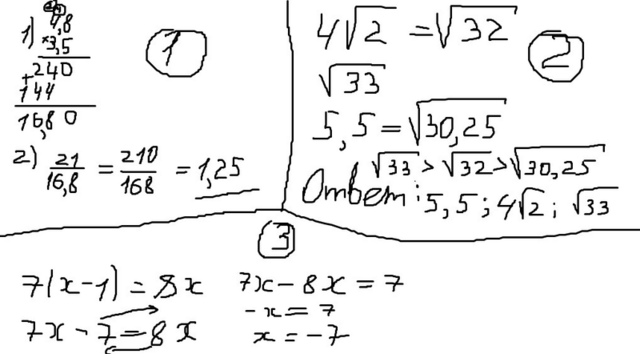 1
1) 4,8
×3,5
+240
144
16,80
2) 21/16,8 = 210/168 = 1,25
2
4√2 = √32
√33
5,5 = √30,25
√33 > √32 > √30,25
Ответ: 5,5; 4√2; √33
3
7(x-1) = 8x
7x - 7 = 8x
7x - 8x = 7
-x = 7
x = -7